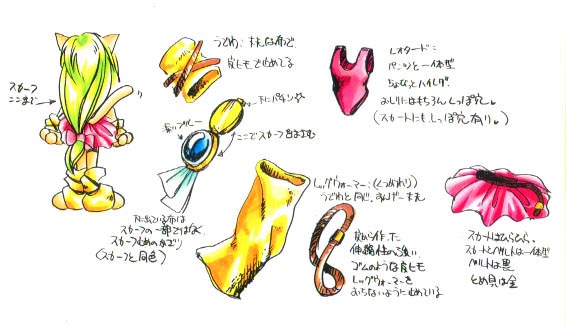 スカーフ
ここまで
うでわ:丈夫な布で
皮ヒモで止めてる
下にパチンや
濃いブルー
ここでスカーフをはさむ
下に出ている布は
スカーフの一部ではなく
スカーフ止めのかざり
(スカーフと同色)
レオタード:
パンツと一体型
ちょっとハイレグ
おしりにはもちろんしっぽ穴♥
(スカートにもしっぽ穴有り♥)
レッグウォーマー:(くつがわり)
うでわと同じ、
丈夫
皮で作った
伸縮性の強い
ゴムのような皮ヒモ
レッグウォーマーを
おちないように止めている
スカートはひらひら。
スカートとベルトは一体型
ベルトは黒
とめ具は金